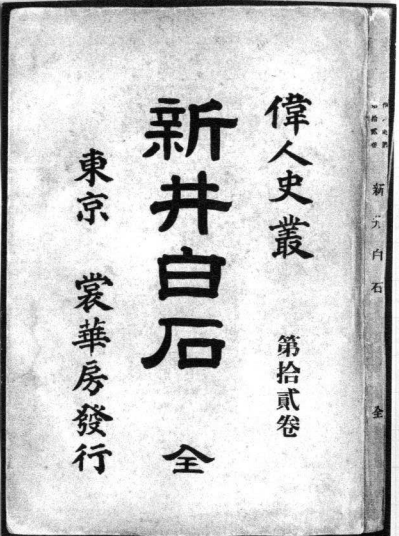 偉人史叢 第拾貳卷
新井白石 全
東京 裳華房發行
新井白石 全